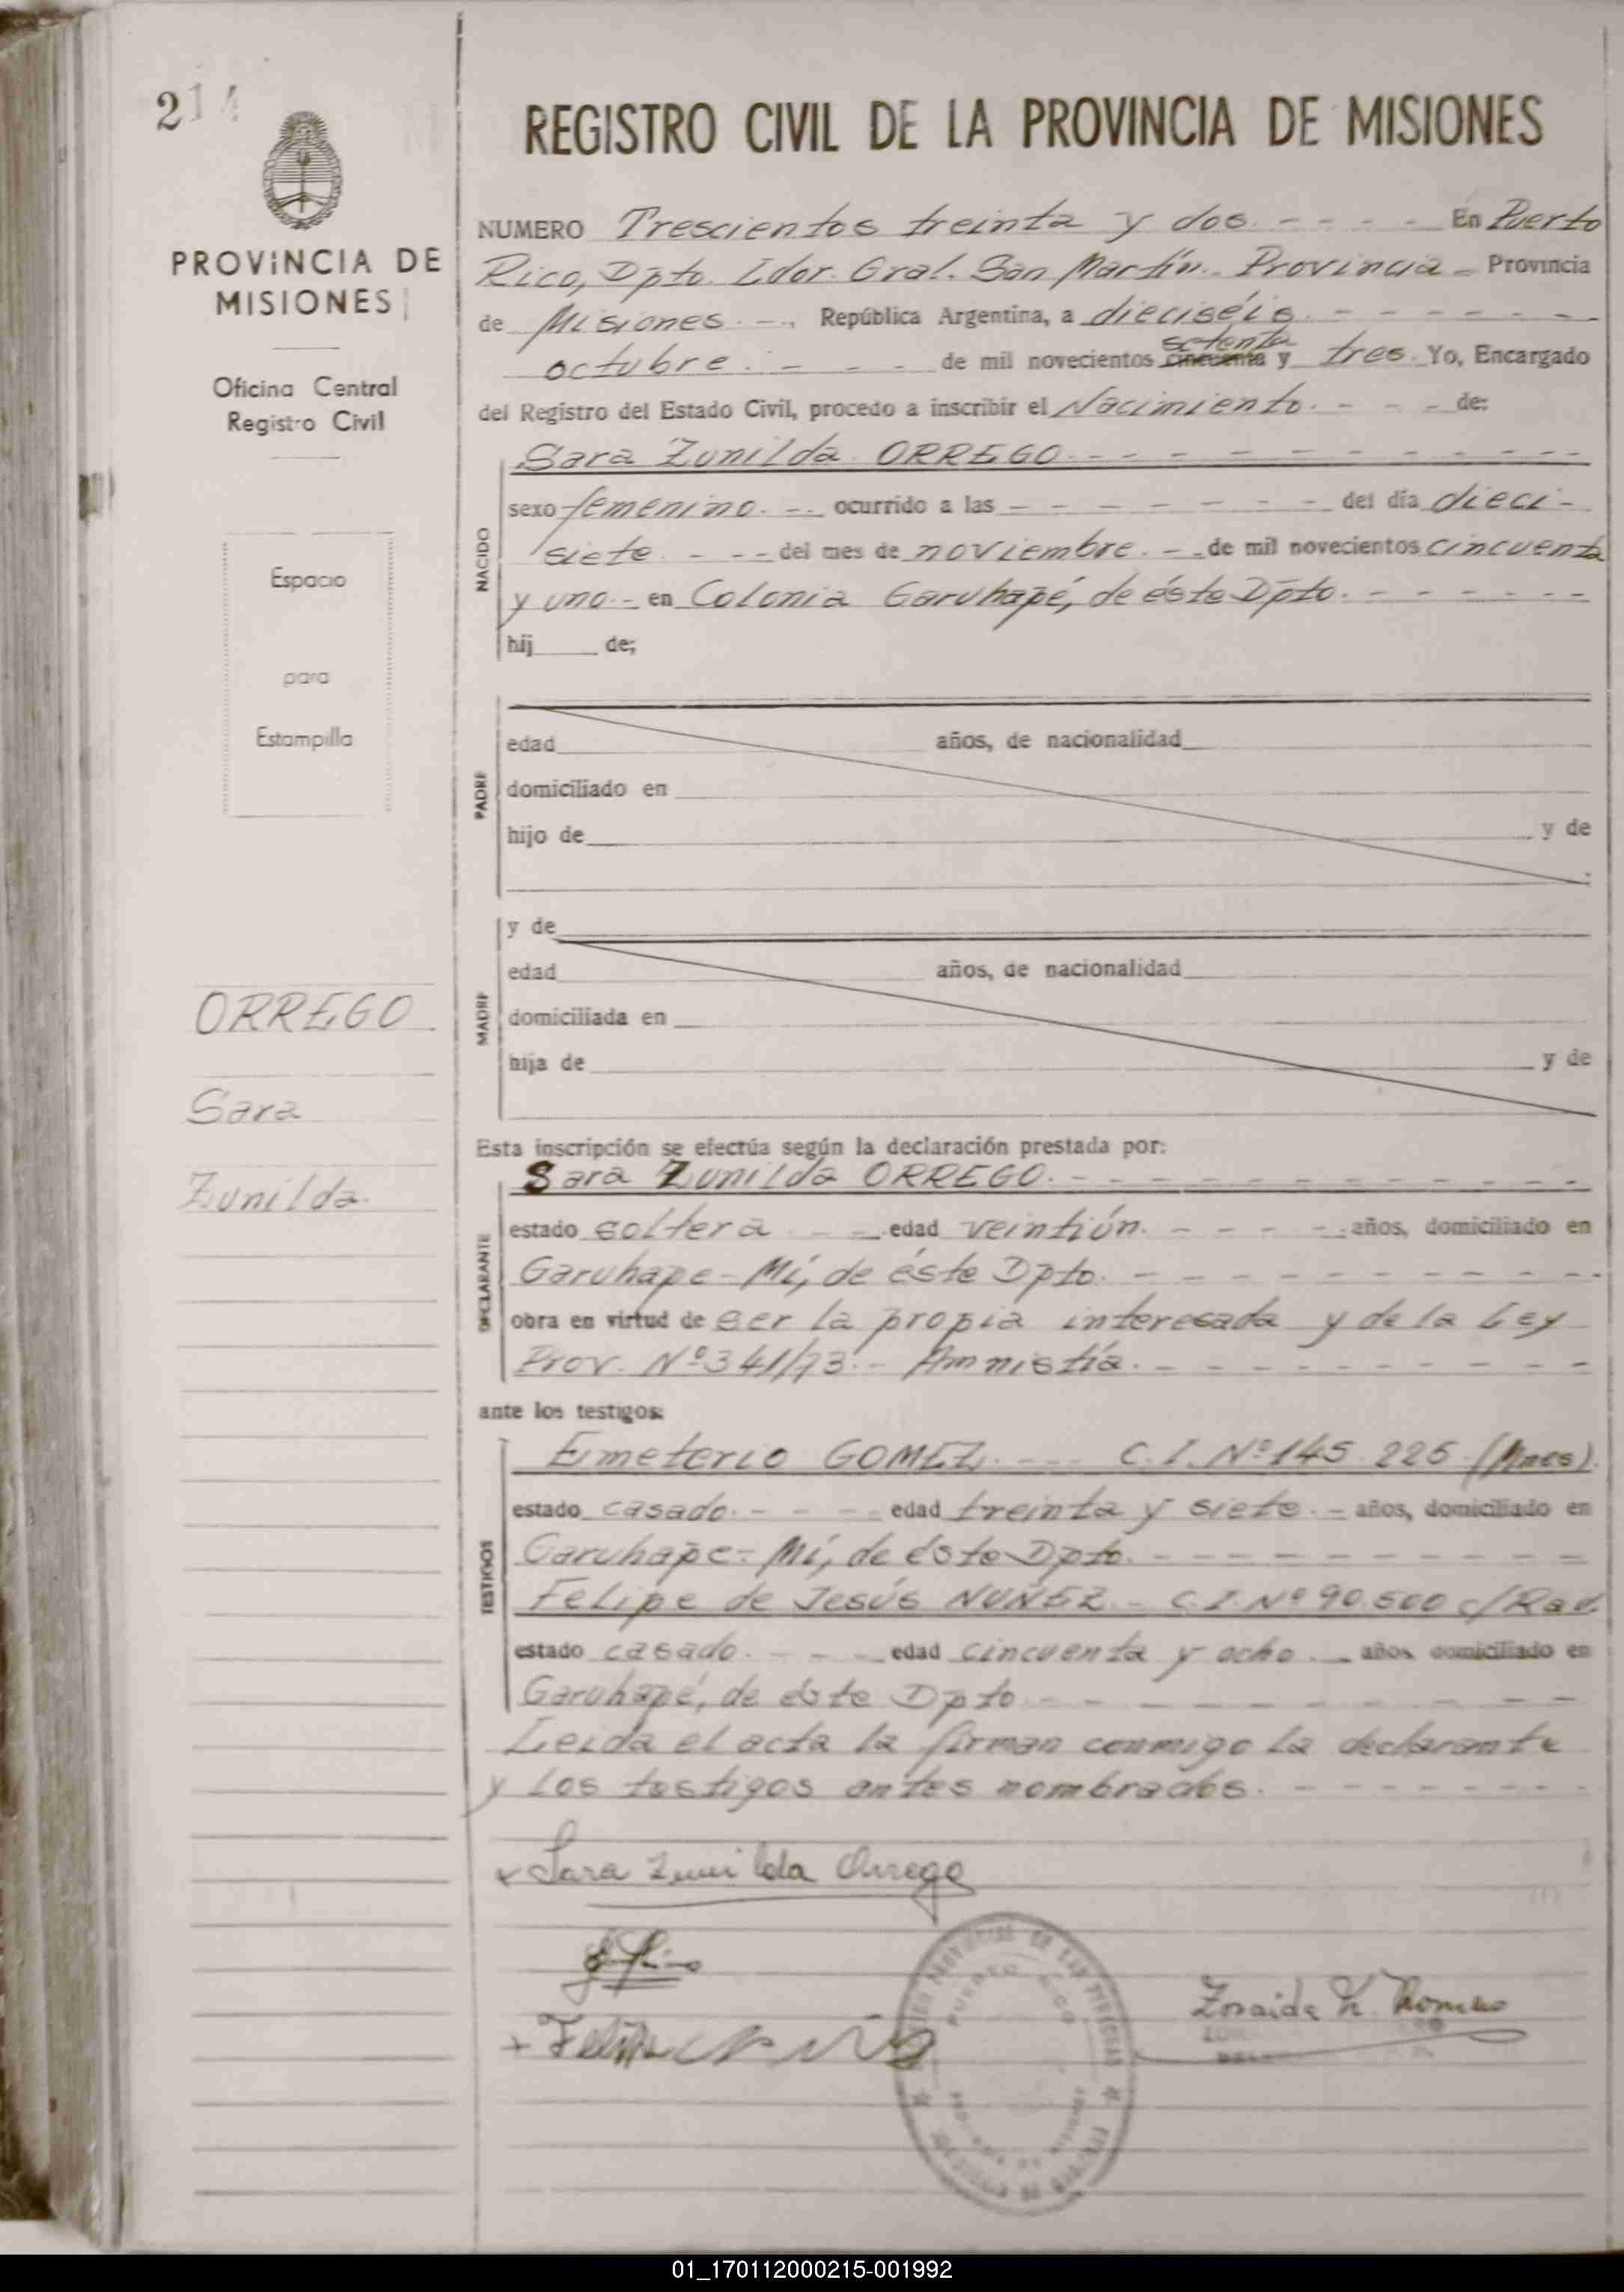 214
PROVINCIA DE
MISIONES
Oficina Central
Registro Civil
Espacio
para
Estampilla
ORREGO
Sara
Zunilda.
REGISTRO CIVIL DE LA PROVINCIA DE MISIONES
NUMERO Trescientos treinta y dos. - - - - En Puerto
Rico, Dpto. Ldor. Gral. San Martín. Provincia - Provincia
de Misiones. - -, República Argentina, a dieciséis. - - - - - -
octubre. - - - de mil novecientos cincuenta setenta y tres. Yo, Encargado
del Registro del Estado Civil, procedo a inscribir el Nacimiento. - - - de:
NACIDO
Sara Zunilda ORREGO. - - - - - - - - - -
sexo femenino. - - ocurrido a las - - - - - - - del día dieci-
siete. - - - del mes de noviembre. - - de mil novecientos cincuenta
y uno. - en Colonia Garuhapé, de éste Dpto. - - - - - -
hij de;
PADRE
edad años, de nacionalidad
domiciliado en
hijo de y de
MADRE
y de
edad años, de nacionalidad
domiciliada en
hija de y de
Esta inscripción se efectúa según la declaración prestada por:
DECLARANTE
Sara Zunilda ORREGO. - - - - - - - - - -
estado soltera - - edad veintiún. - - - - - años, domiciliado en
Garuhape-Mí, de éste Dpto. - - - - - - - - - -
obra en virtud de ser la propia interesada y de la Ley
Prov. Nº 341/73. - Amnistía. - - - - - - - - -
ante los testigos:
TESTIGOS
Eimeterio GOMEZ. - - - C.I. Nº 145.225 (Mnes).
estado casado. - - - - edad treinta y siete. - años, domiciliado en
Garuhape-Mí, de éste Dpto. - - - - - - - - - -
Felipe de Jesús NUÑEZ. - C.I. Nº 90.500 c/Rad.
estado casado. - - - edad cincuenta y ocho. - años domiciliado en
Garuhapé, de éste Dpto. - - - - - - - - -
Leida el acta la firman conmigo la declarante
y los testigos antes nombrados. - - - - - - - -
Sara Zunilda Orrego
Zoraida K. Romero
PUERTO RICO
01_170112000215-001992